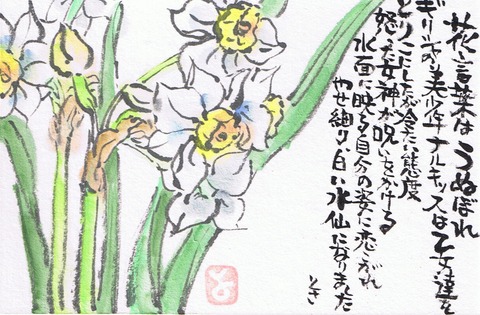 花言葉は うぬぼれ
ギリシャの美少年ナルキッスは乙女達を
とりこにしたが冷た態度
怒た女神が呪いをかける
水面に映る自分の姿に恋こがれ
やせ細り白い水仙になりました
とき
と